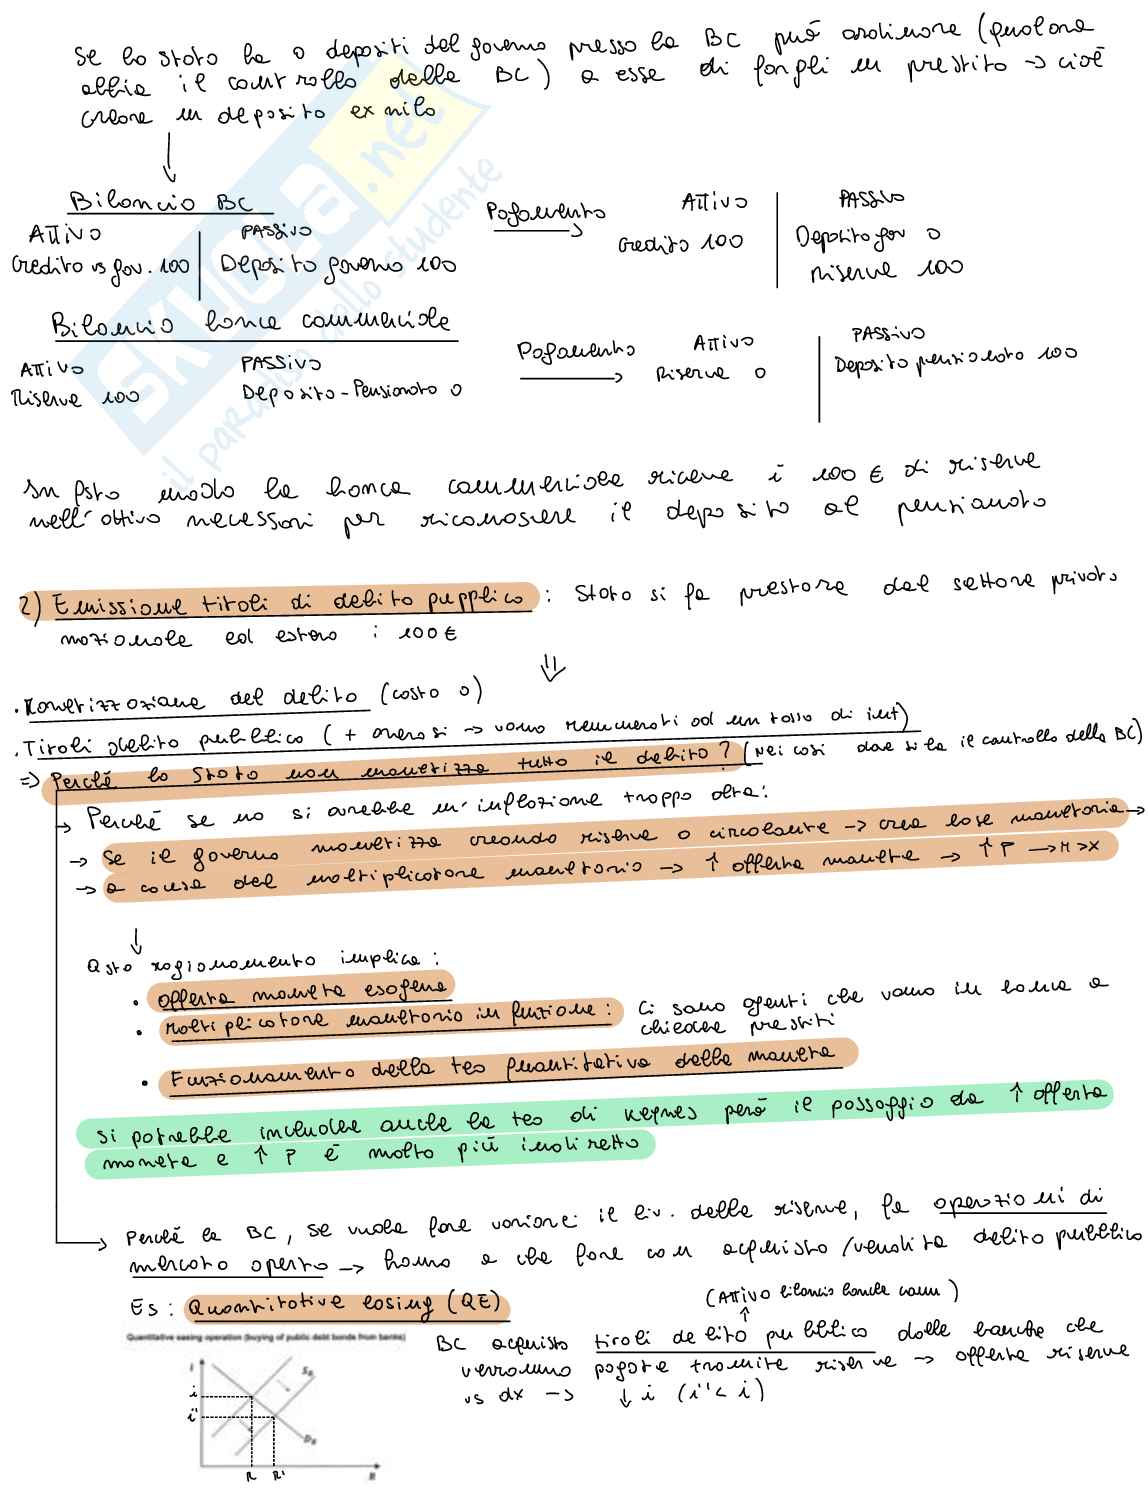 Se lo stato ha 0 depositi del governo presso la BC può ordinare (qualora
abbia il controllo della BC) a esse di fargli un prestito → cioè
creare un deposito ex nilo
Bilancio BC
ATTIVO PASSIVO
Credito vs gov. 100 Deposito governo 100
Pagamento
ATTIVO PASSIVO
Credito 100 Deposito gov 0
Riserve 100
Bilancio banca commerciale
ATTIVO PASSIVO
Riserve 100 Deposito-Pensionato 0
Pagamento
ATTIVO PASSIVO
Riserve 0 Deposito pensionato 100
In qsto modo la banca commerciale riceve i 100 € di riserve
nell'attivo necessari per riconoscere il deposito al pensionato
2) Emissione titoli di debito pupplico : Stato si fa prestare dal settore privato
nazionale ed estero i 100€
. Monetizzazione del debito (costo 0)
. Titoli debito pubblico (+ onerosi → vanno remunerati ad un tasso di int)
=> Perché lo Stato non monetizza tutto il debito? (Nei casi dove si ha il controllo della BC)
→ Perché se no si avrebbe un'inflazione troppo alta:
→ Se il governo monetizza creando riserve o circolante → crea base monetaria →
→ a causa del moltiplicatore monetario → ↑ offerta moneta → ↑ P → M > X
Qsto ragionamento implica :
• offerta moneta esogena
• Moltiplicatore monetario in funzione : Ci sono agenti che vanno in banca a
chiedere prestiti
• Funzionamento della teo quantitativa della moneta
Si potrebbe includere anche la teo di Keynes però il passaggio da ↑ offerta
moneta e ↑ P è molto più indiretto
Perché la BC, se vuole fare variare il liv. delle riserve, fa operazioni di
mercato aperto → hanno a che fare con acquisto/vendita debito pubblico
Es : Quantitative easing (QE)
(Attivo bilancio banche comm)
Quantitative easing operation (buying of public debt bonds from banks)
BC acquista titoli debito pubblico dalle banche che
verranno pagate tramite riserve → offerta riserve
vs dx → ↓ i (i'' < i)
i
i
i'
S_R
D_R
R R' R
SKUOLA.net
il paradiso dello studente